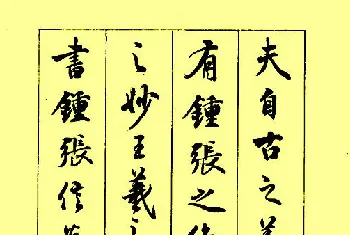 夫自古之善
有鍾張之絶
之妙王羲之
書鍾張信為